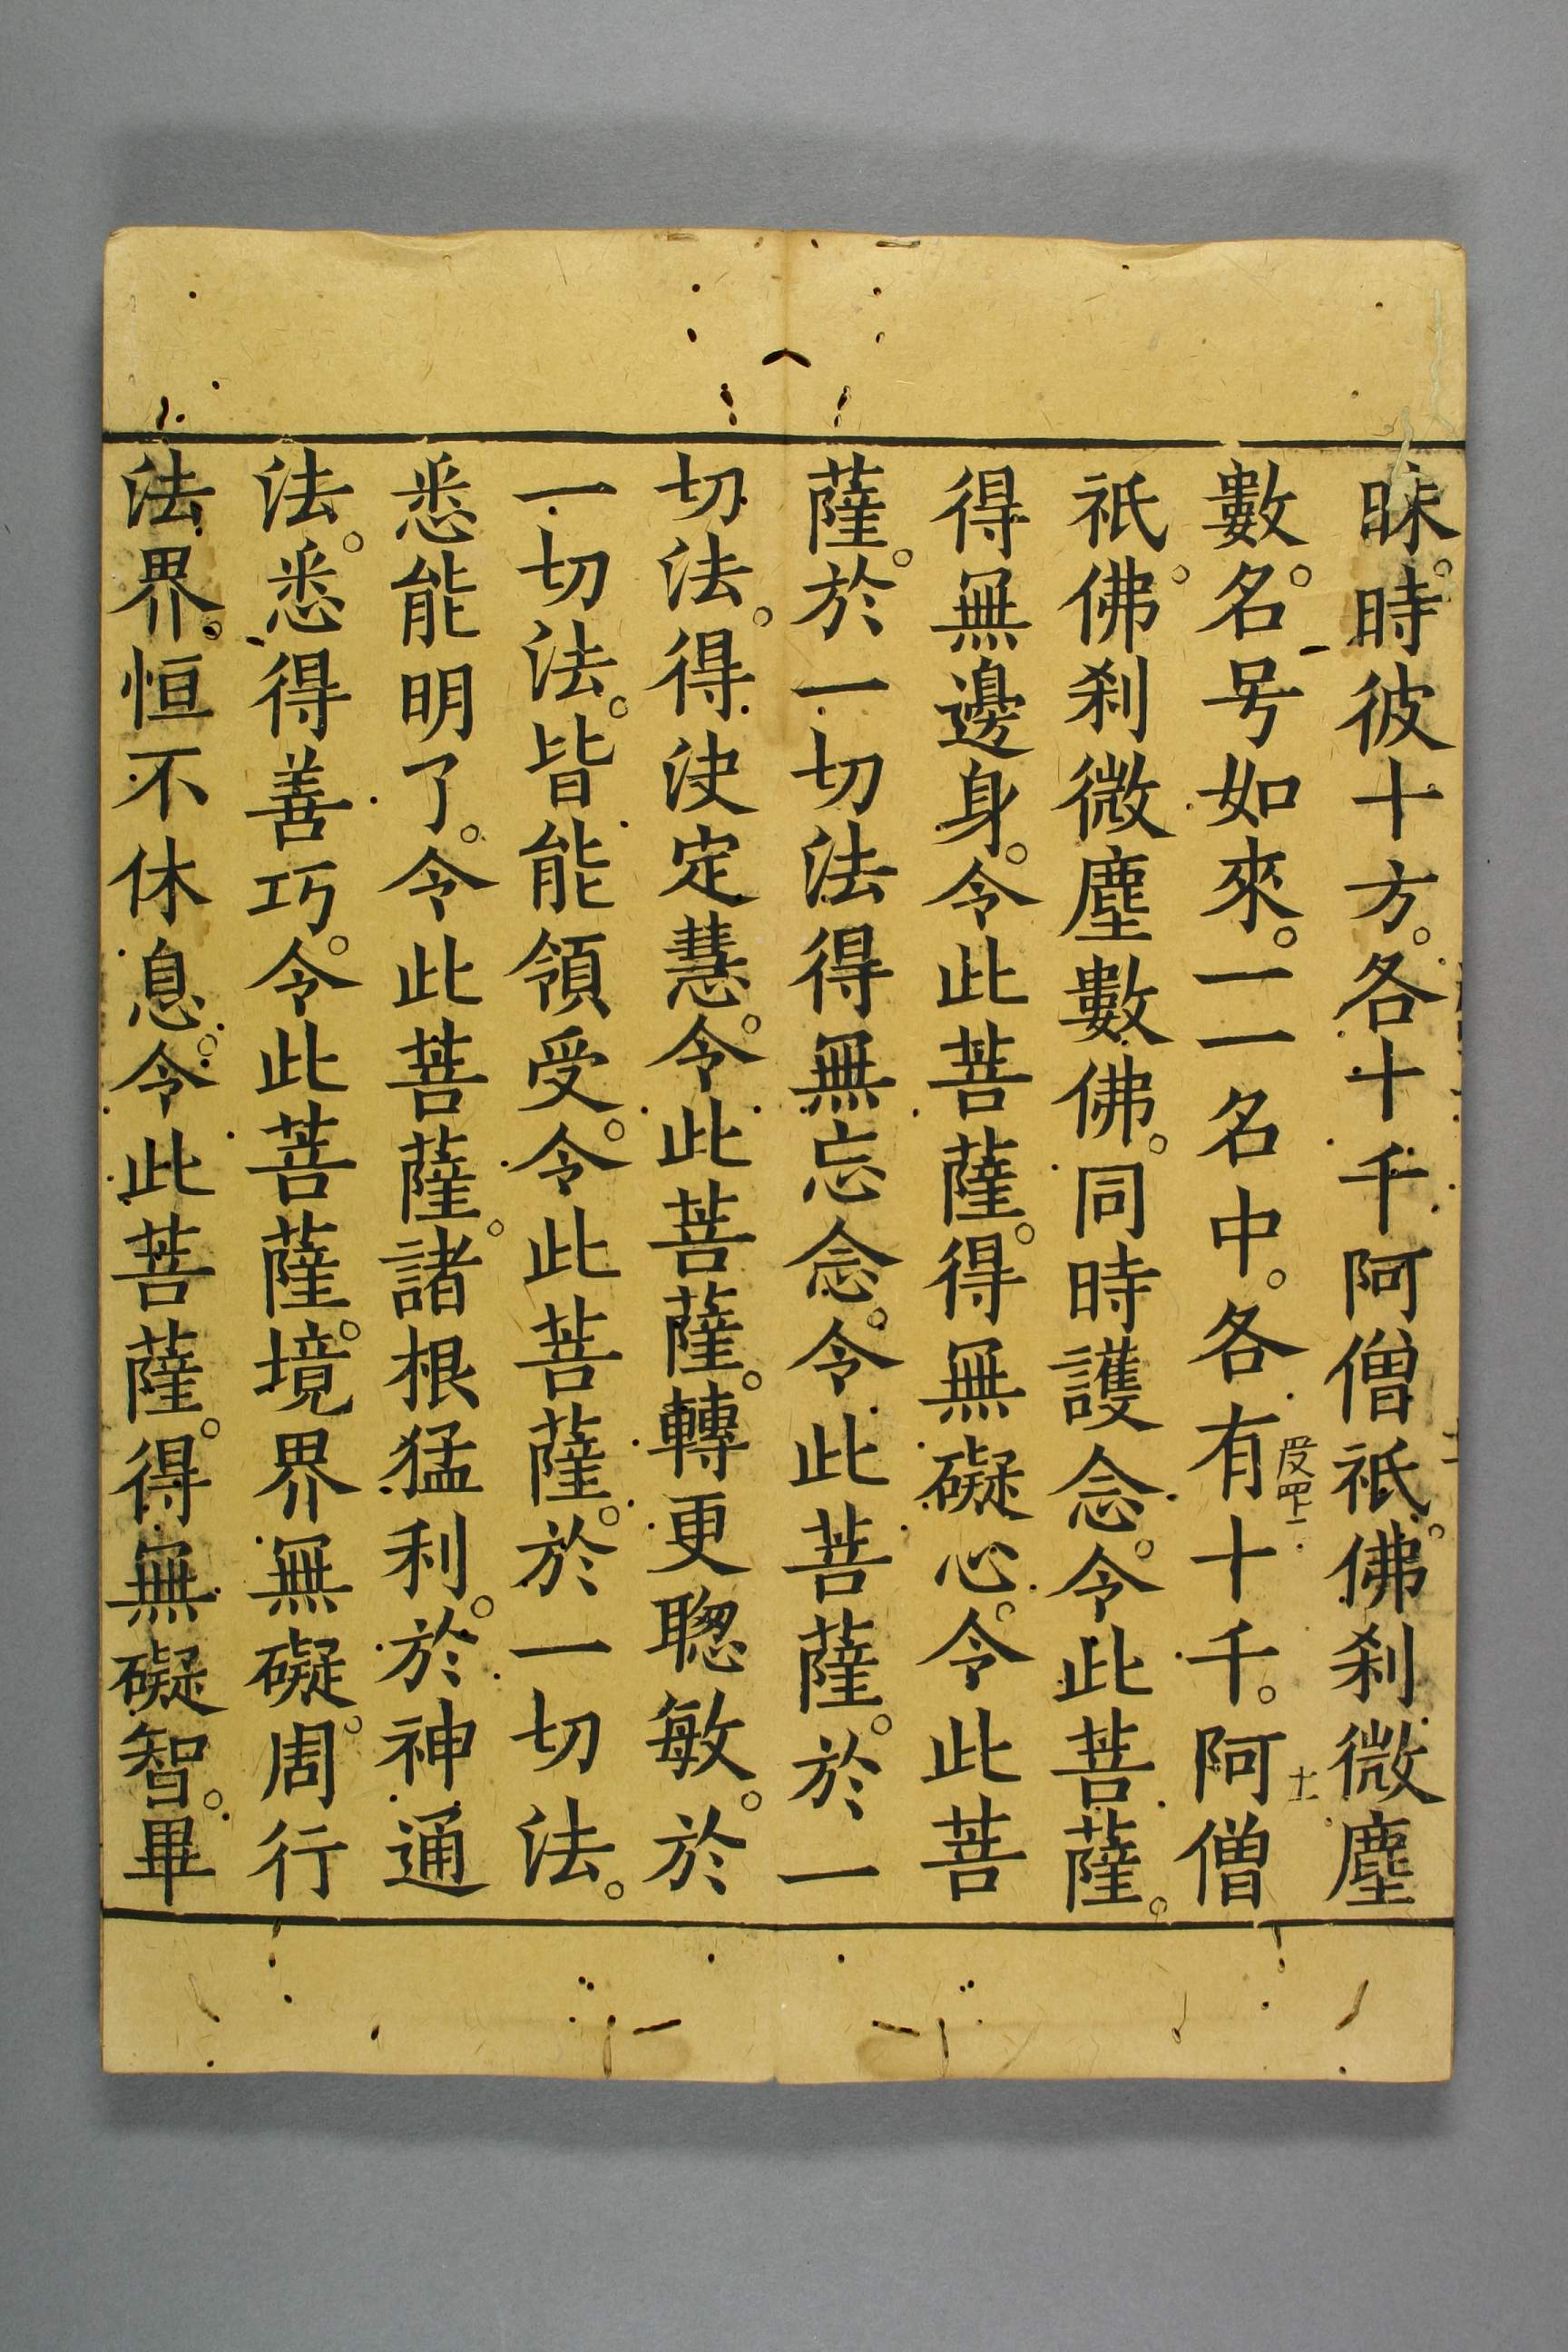 昧。時彼十方。各十千阿僧祇。佛刹微塵
數。名号如來。一一名中。各有十千。阿僧
祇。佛刹微塵數佛。同時護念。令此菩薩。
得無邊身。令此菩薩。得無礙心。令此菩
薩。於一切法得無忘念。令此菩薩。於一
切法。得決定慧。令此菩薩。轉更聦敏。於
一切法。皆能領受。令此菩薩。於一切法。
悉能明了。令此菩薩。諸根猛利。於神通
法。悉得善巧。令此菩薩。境界無礙。周行
法界。恒不休息。令此菩薩。得無礙智。畢